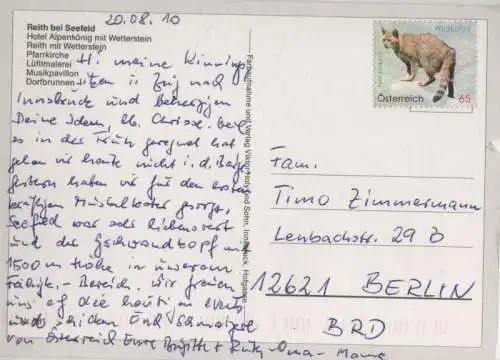 20.08.10
Reith bei Seefeld
Hotel Alpenkönig mit Wetterstein
Reith mit Wetterstein
Pfarrkirche
Lüftlmalerei
Musikpavillon
Dorfbrunnen
Hi meine
sitzen i. Zug nach
Innsbruck und beherzigen
Deine Ideen, lb. Chrisse. Weil
es in der Früh geregnet hat
gehen wir heute nicht i. d. Berge
gestern haben wir für den ersten
kräftigen Muskelkater gesorgt,
Seefeld war sehr
und der Gschwandtkopf mit
1500 m Höhe in unserem
Bereich. Wir freuen
uns auf die
und
von Österreich Eure Brigitte + Oma
Farbaufnahme und Verlag Innsbruck
WILDKATZE
Österreich
65
Fam.
Timo Zimmermann
Lenbachstr. 29 b
12621 BERLIN
BRD